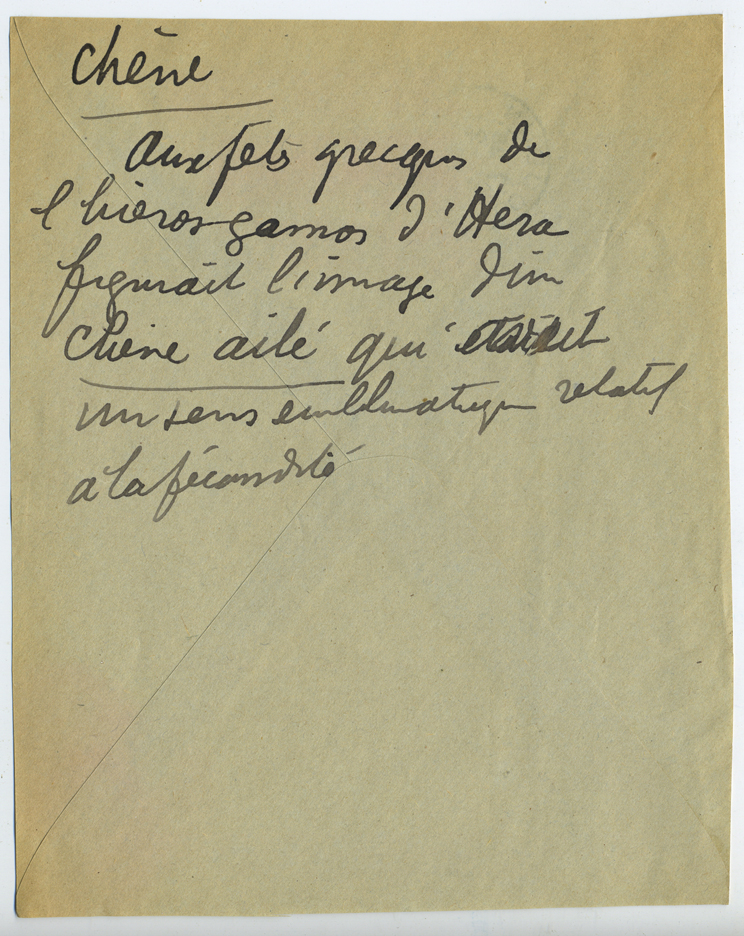 chêne
Aux fets grecques de
l'hieros-gamos d'Hera
figurait l'image d'un
chêne ailé qui
un sens emblematique relatif
a la fécondité